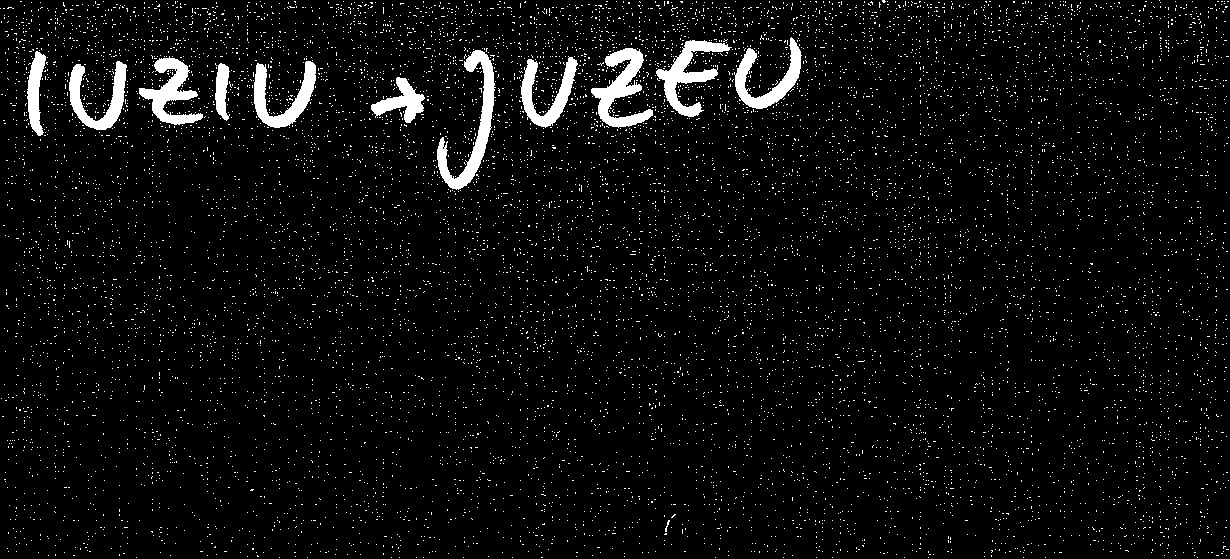 IUZIU → JUZEU